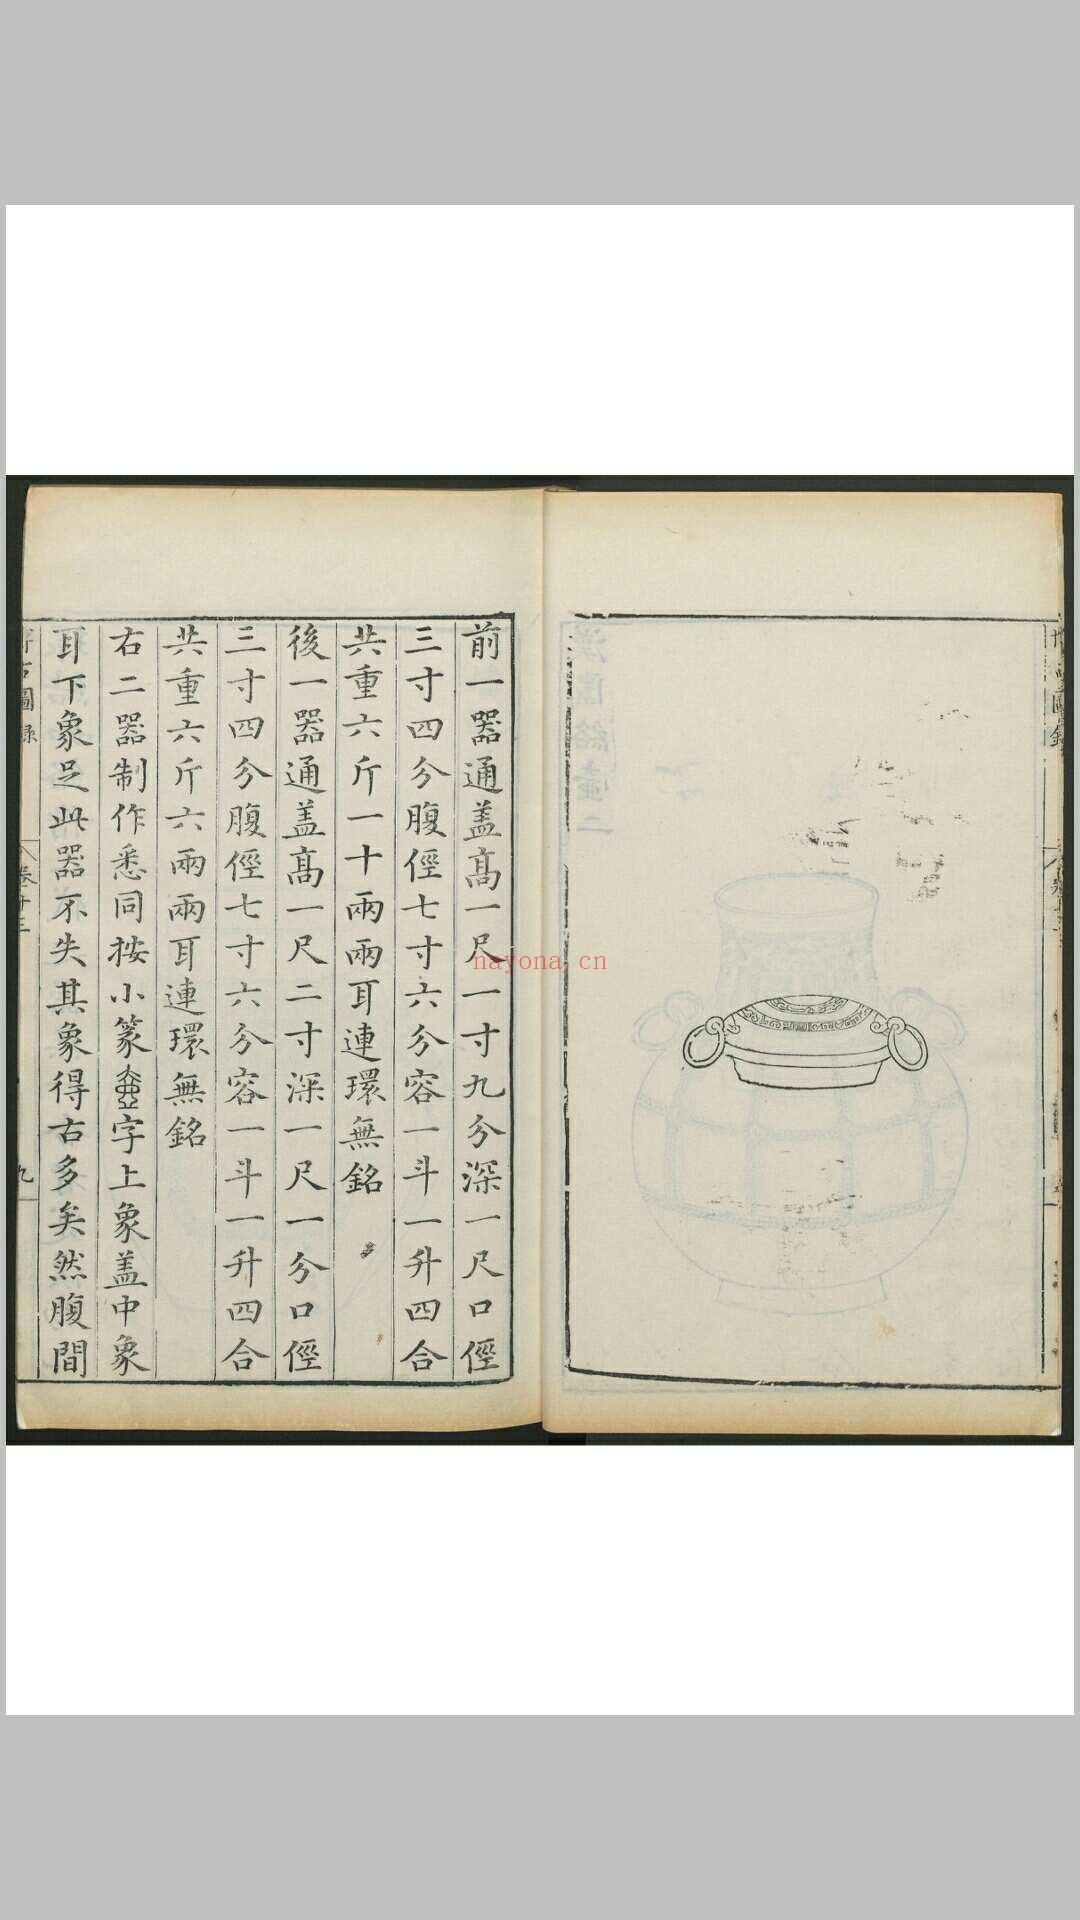 前一器通盖高一尺一寸九分深一尺口徑
三寸四分腹徑七寸六分容一斗一升四合
共重六斤一十兩兩耳連環無銘
後一器通盖高一尺二寸深一尺一分口徑
三寸四分腹徑七寸六分容一斗一升四合
共重六斤六兩兩耳連環無銘
右二器制作悉同按小篆字上象盖中象
耳下象足此器不失其象得古多矣然腹間
古圖錄 卷十三 九
nayona.cn